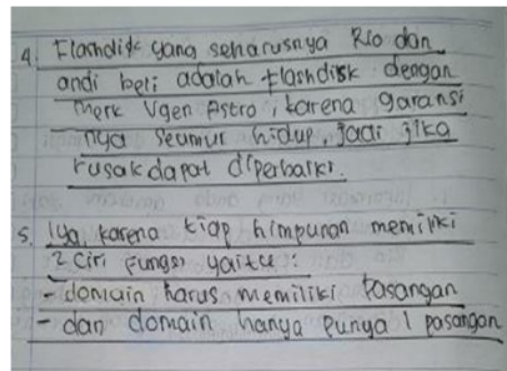 4. Flashdisk yang seharusnya Rio dan
andi beli adalah flashdisk dengan
merk Vgen Astro, karena garansi
nya seumur hidup, jadi jika
rusak dapat diperbaiki.
5. Iya, karena tiap himpunan memiliki
2 ciri fungsi yaitu:
- domain harus memiliki pasangan
- dan domain hanya punya 1 pasangan